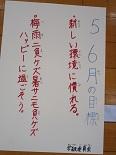 5 6月の目標
・新しい環境に慣れる。
・梅雨ニ負ケズ暑サニモ負ケズ
ハッピーに過ごそう。